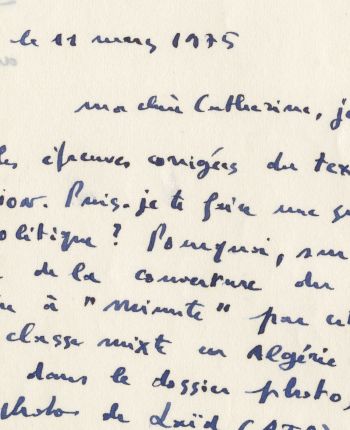 le 11 mars 1975
ma chère Catherine, je
les épreuves corrigées du tex
Puis-je te faire une
olitique ? Pourquoi, sur
de la couverture du
à "Minute" par
classe mixte en Algérie
dans le dossier photo,
photo de Laïd